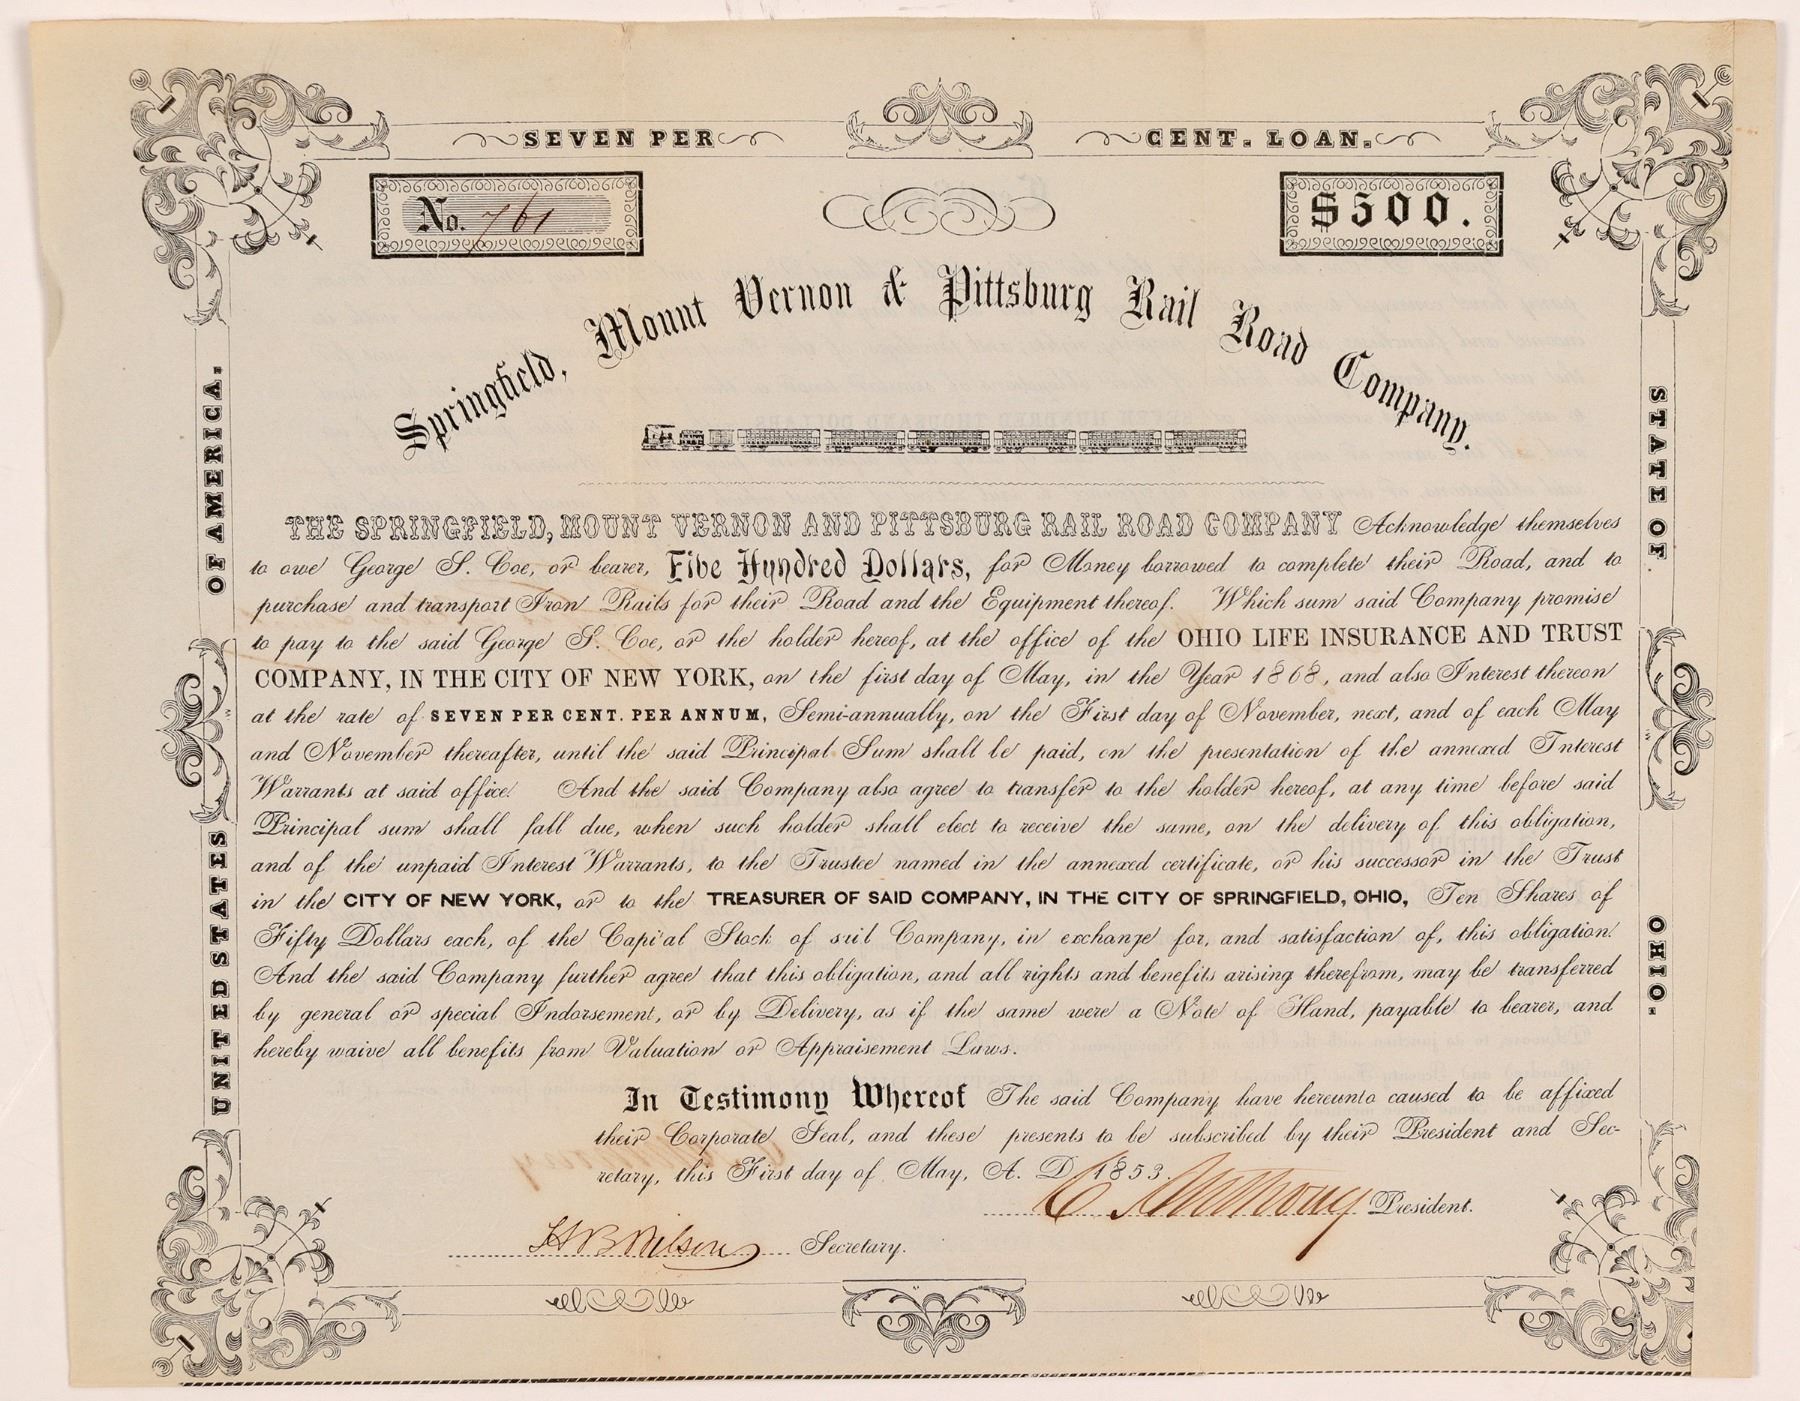 SEVEN PER CENT. LOAN.
No. 761
$500.
Springfield, Mount Vernon & Pittsburg Rail Road Company.
OF AMERICA.
UNITED STATES
STATE OF
OHIO.
THE SPRINGFIELD, MOUNT VERNON AND PITTSBURG RAIL ROAD COMPANY Acknowledge themselves
to owe George S. Coe, or bearer, Five Hundred Dollars, for Money borrowed to complete their Road, and to
purchase and transport Iron Rails for their Road and the Equipment thereof. Which sum said Company promise
to pay to the said George S. Coe, or the holder hereof, at the office of the OHIO LIFE INSURANCE AND TRUST
COMPANY, IN THE CITY OF NEW YORK, on the first day of May, in the Year 1868, and also Interest thereon
at the rate of SEVEN PER CENT. PER ANNUM, Semi-annually, on the First day of November, next, and of each May
and November thereafter, until the said Principal Sum shall be paid, on the presentation of the annexed Interest
Warrants at said office. And the said Company also agree to transfer to the holder hereof, at any time before said
Principal sum shall fall due, when such holder shall elect to receive the same, on the delivery of this obligation,
and of the unpaid Interest Warrants, to the Trustee named in the annexed certificate, or his successor in the Trust
in the CITY OF NEW YORK, or to the TREASURER OF SAID COMPANY, IN THE CITY OF SPRINGFIELD, OHIO, Ten Shares of
Fifty Dollars each, of the Capital Stock of said Company, in exchange for, and satisfaction of, this obligation.
And the said Company further agree that this obligation, and all rights and benefits arising therefrom, may be transferred
by general or special Indorsement, or by Delivery, as if the same were a Note of Hand, payable to bearer, and
hereby waive all benefits from Valuation or Appraisement Laws.
In Testimony Whereof The said Company have hereunto caused to be affixed
their Corporate Seal, and these presents to be subscribed by their President and Sec-
retary, this First day of May, A. D. 1853.
C Anthony President.
H B Wilson Secretary.